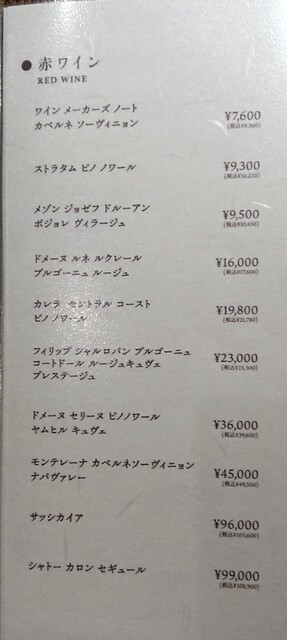 ● 赤ワイン
RED WINE
ワイン メーカーズ ノート
カベルネ ソーヴィニョン
¥7,600
(税込¥8,360)
ストラタム ピノ ノワール
¥9,300
(税込¥10,230)
メゾン ジョゼフ ドルーアン
ボジョレ ヴィラージュ
¥9,500
(税込¥10,450)
ドメーヌ ルネ ルクレール
ブルゴーニュ ルージュ
¥16,000
(税込¥17,600)
カレラ セントラル コースト
ピノ ノワール
¥19,800
(税込¥21,780)
フィリップ シャルロパン ブルゴーニュ
コートドール ルージュキュヴェ
プレステージュ
¥23,000
(税込¥25,300)
ドメーヌ セリーヌ ピノノワール
ヤムヒル キュヴェ
¥36,000
(税込¥39,600)
モンテレーナ カベルネソーヴィニョン
ナパヴァレー
¥45,000
(税込¥49,500)
サッシカイア
¥96,000
(税込¥105,600)
シャトー カロン セギュール
¥99,000
(税込¥108,900)